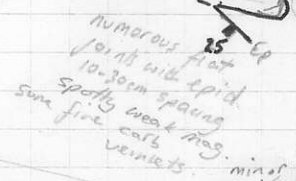 Ep
25
numorous flat
joints with epid.
10-30cm spacing
spotty weak mag.
some fine carb
veinlets.
minor